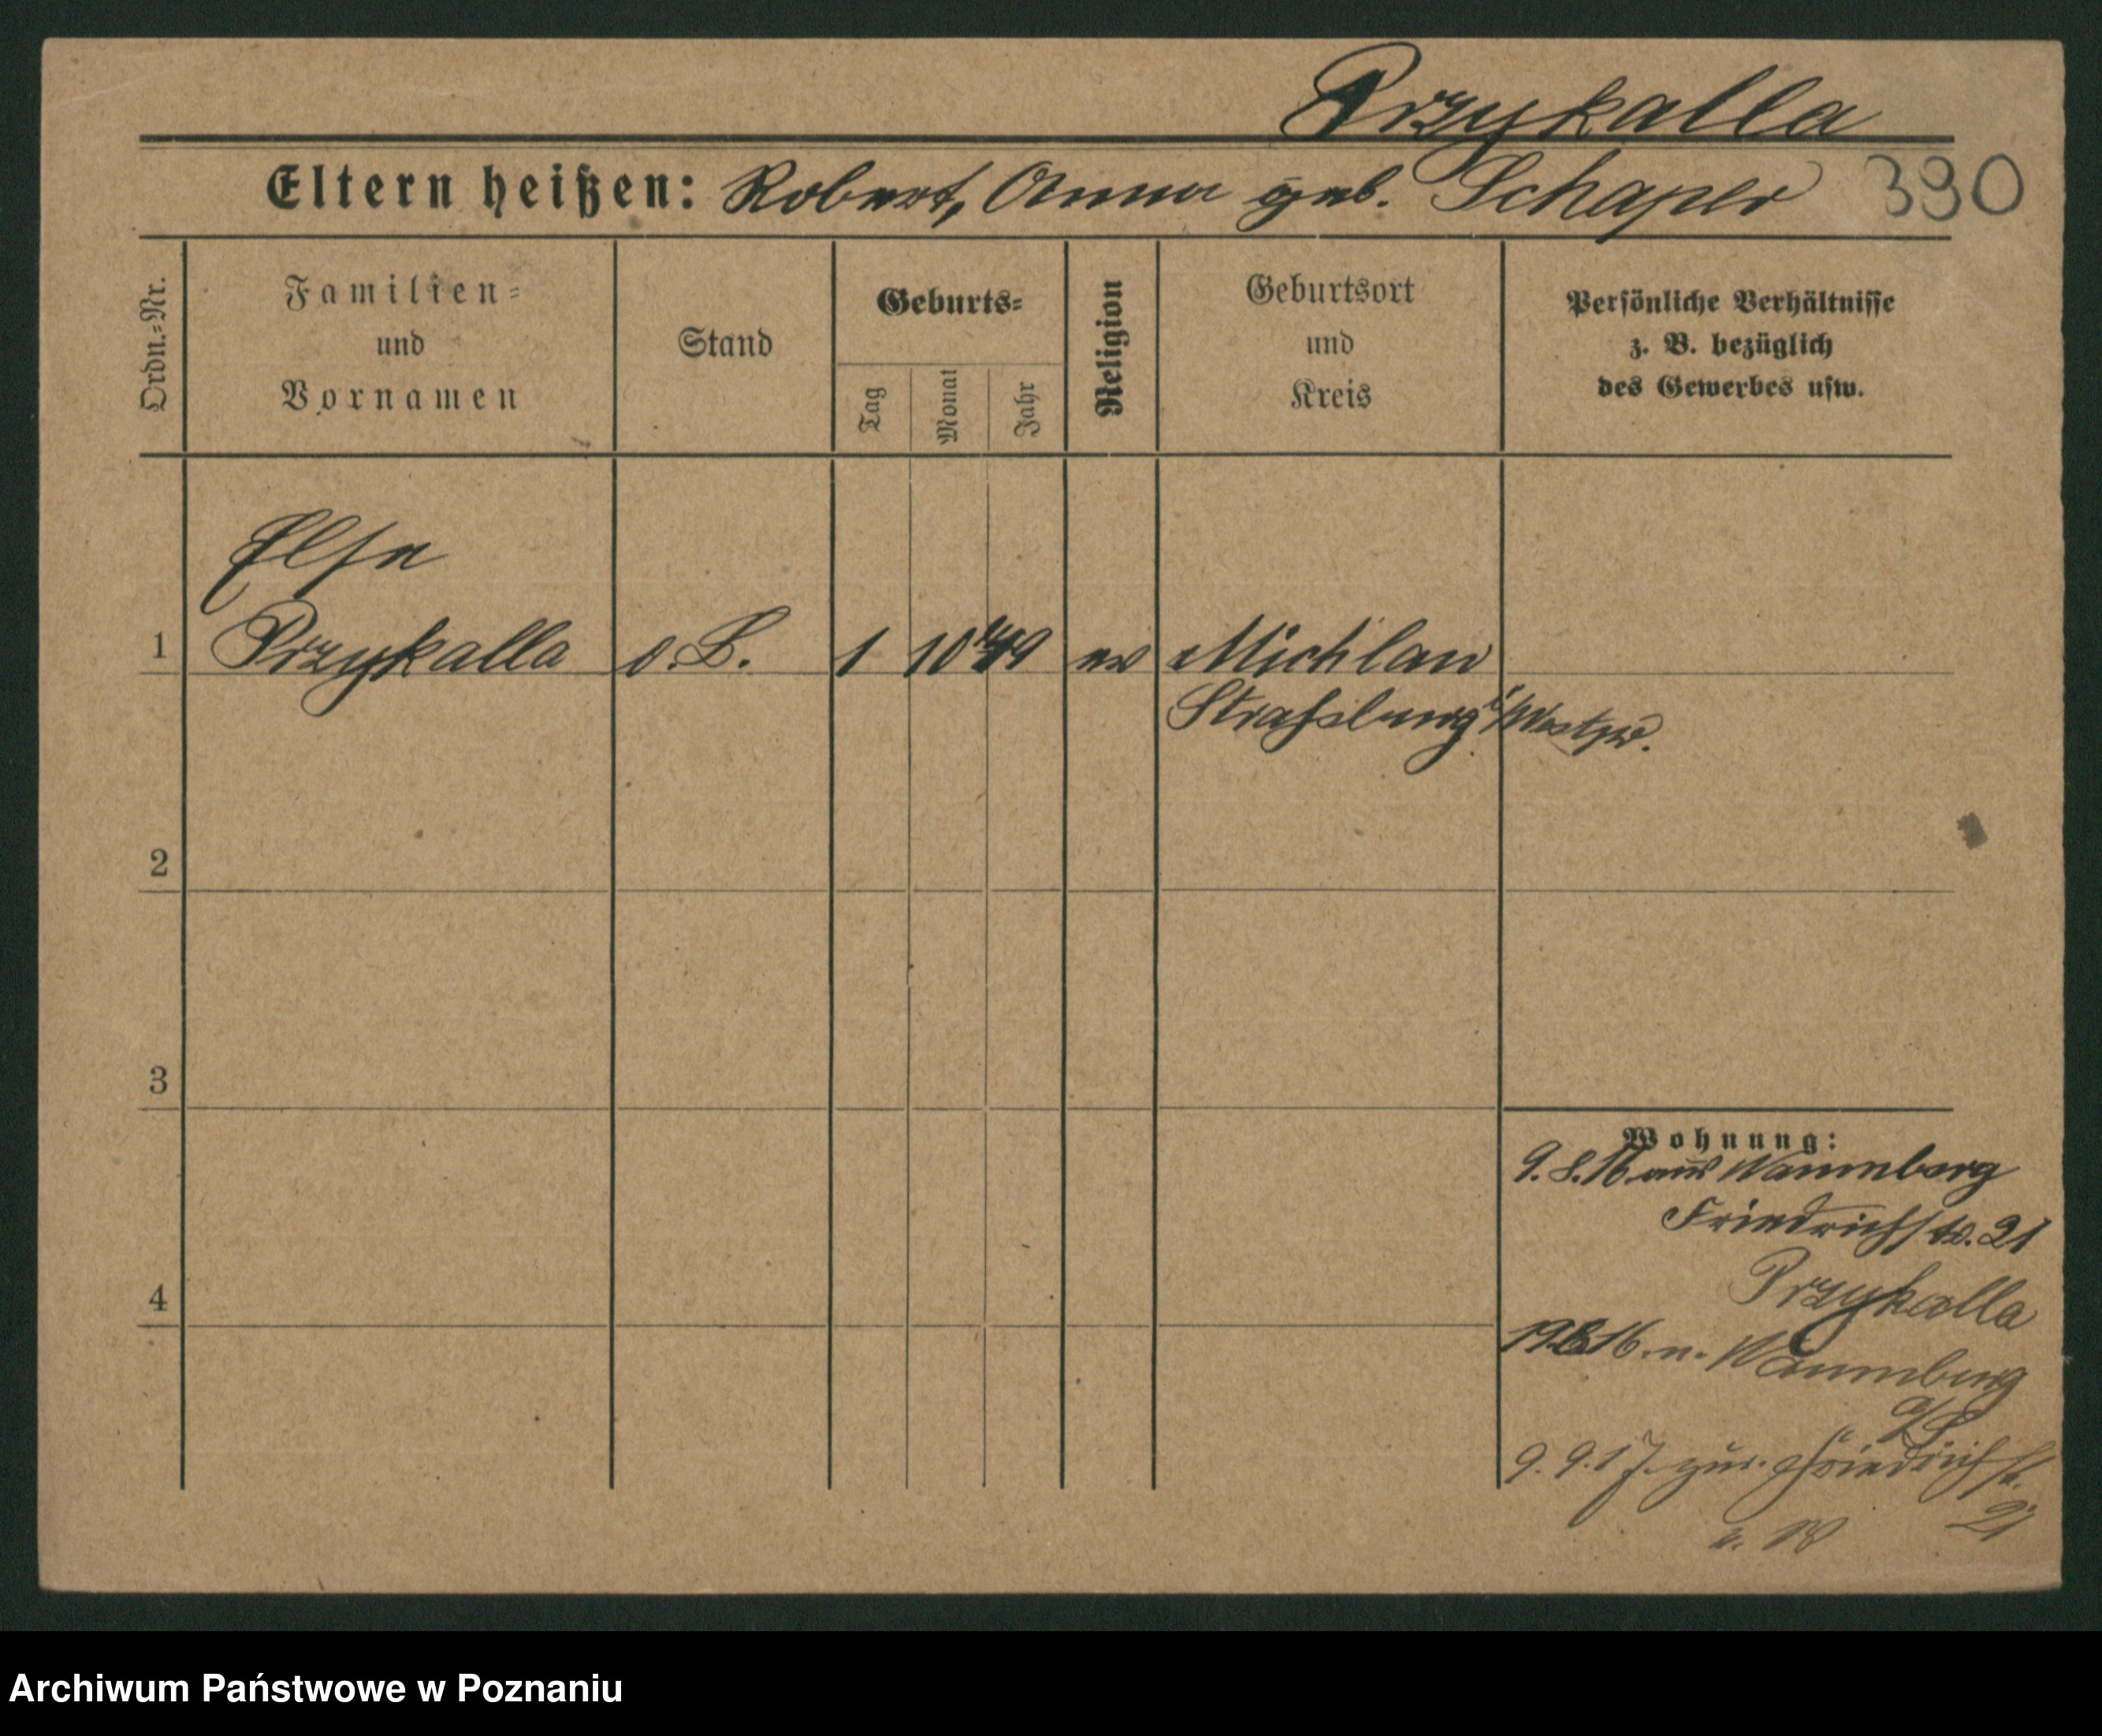 Przykalla
Eltern heißen: Robert, Anna geb. Schaper 390
Ordn.-Nr.
Familien-
und
Vornamen
Stand
Geburts-
Tag
Monat
Jahr
Religion
Geburtsort
und
Kreis
Persönliche Verhältnisse
z. B. bezüglich
des Gewerbes usw.
Else
1 Przykalla o. B. 1 10 99 ev Michlau
Strassburg i/Westpr.
2
3
Wohnung:
9.8.16 aus Naumburg
Friedrichstr. 21
Przykalla
4
19816. n. Naumburg
a/S
9.9.17. zur. Friedrichst.
21